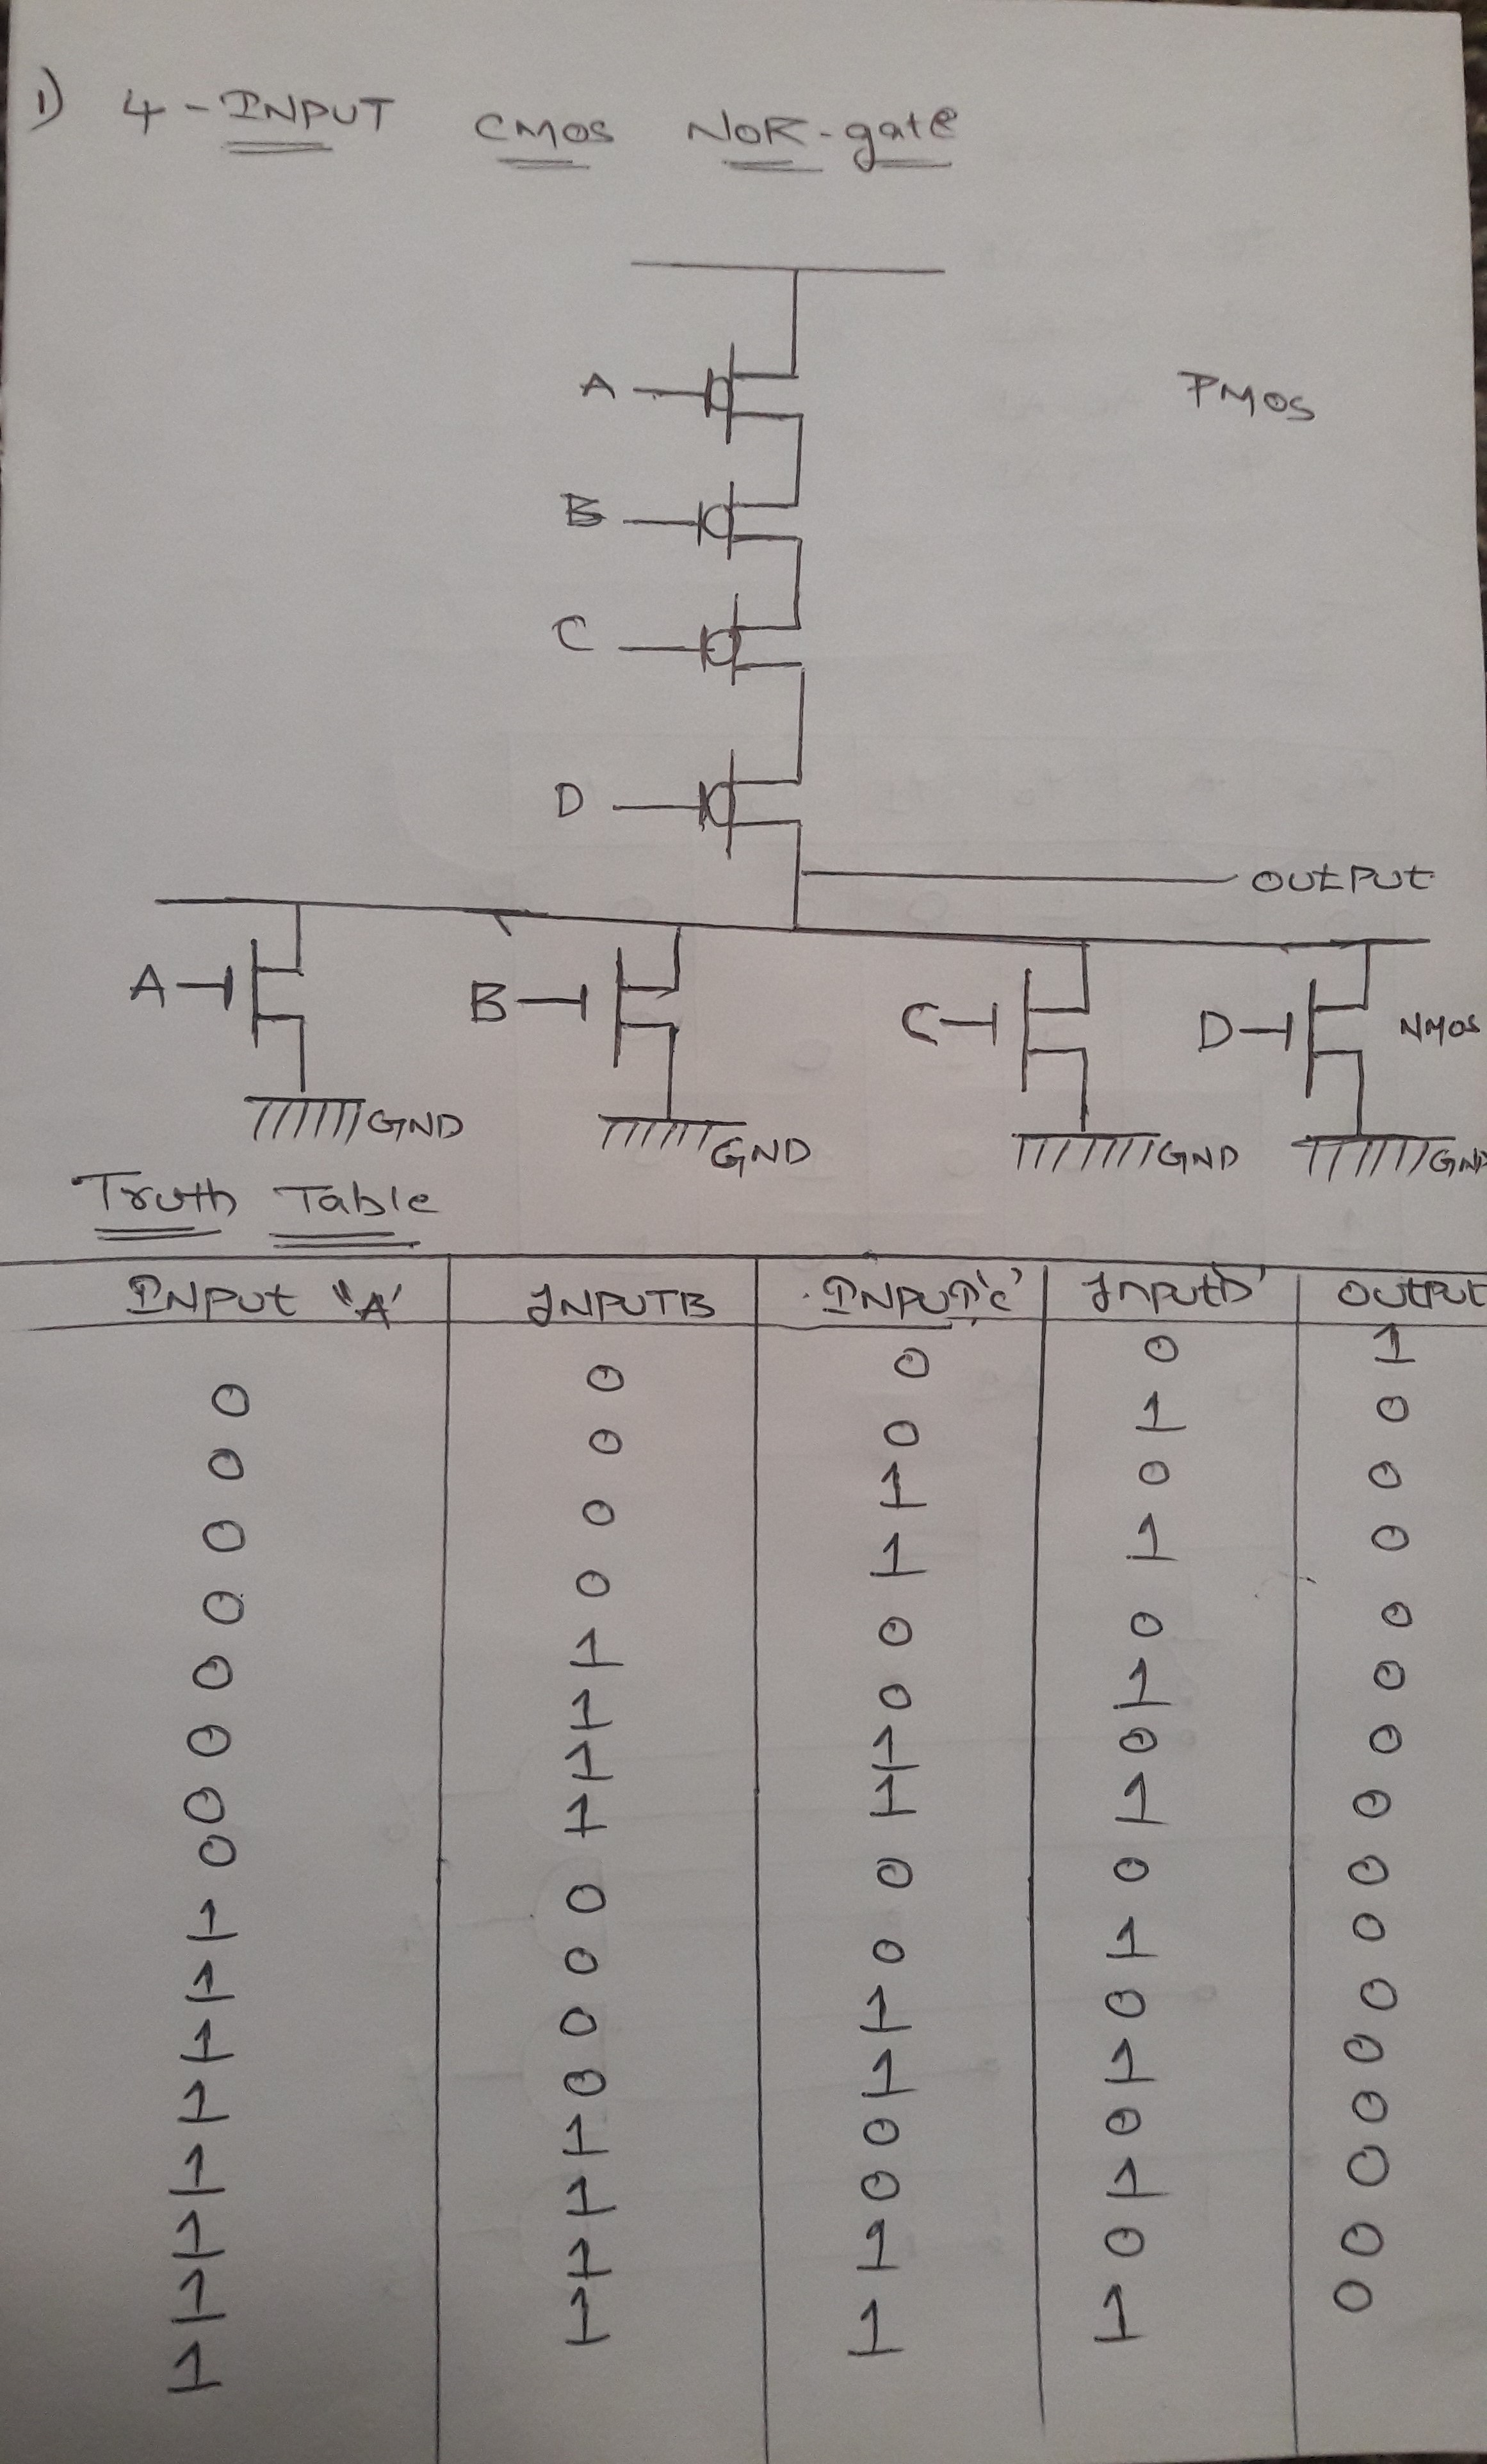 1) 4-INPUT CMOS NOR-gate
A
PMOS
B
C
D
OUTPUT
A B C D NMOS
GND GND GND GND
Truth Table
INPUT "A' INPUTB INPUT'C' INPUTD' OUTPUT
0 0 0 0 1
0 0 0 1 0
0 0 1 0 0
0 0 1 1 0
0 1 0 0 0
0 1 0 1 0
0 1 1 0 0
0 1 1 1 0
1 0 0 0 0
1 0 0 1 0
1 0 1 0 0
1 0 1 1 0
1 1 0 0 0
1 1 0 1 0
1 1 1 0 0
1 1 1 1 0